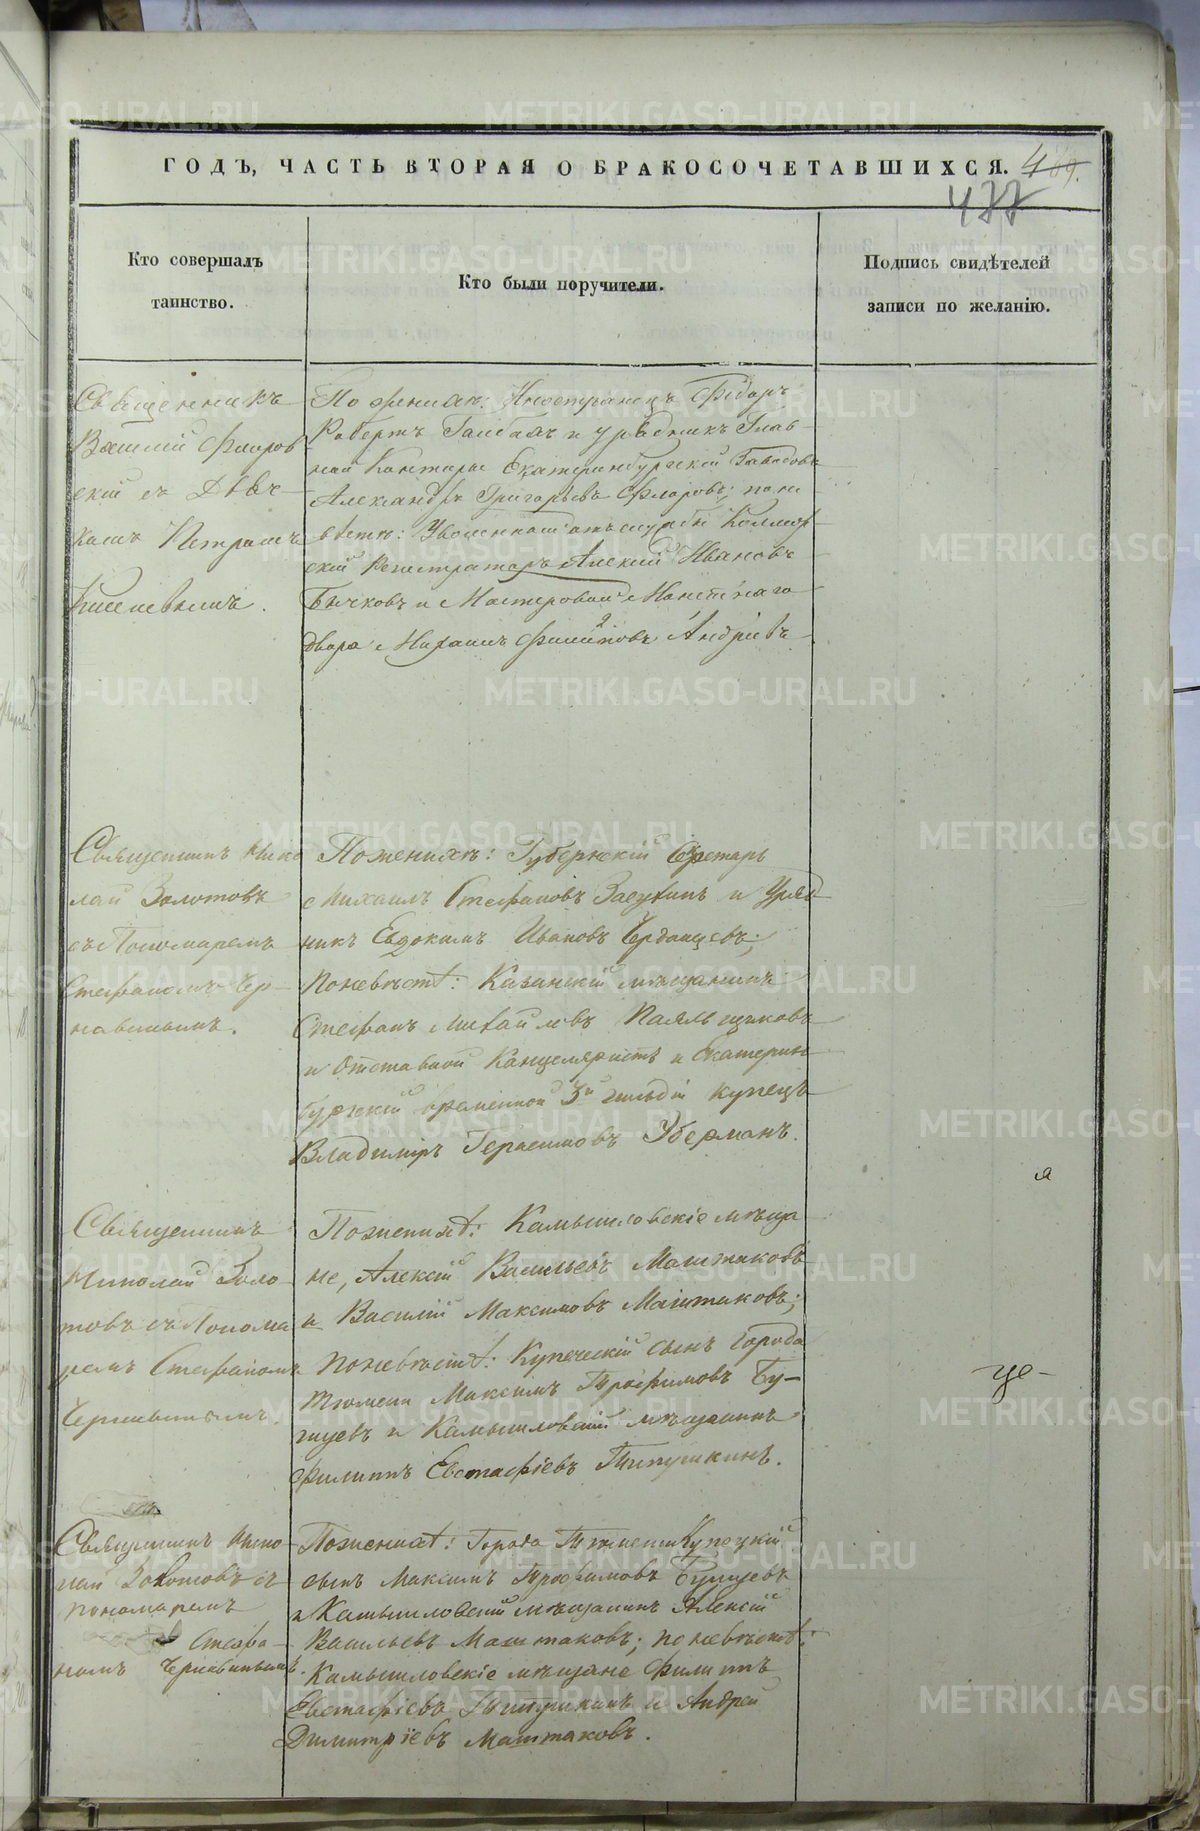 ГОДЪ, ЧАСТЬ ВТОРАЯ О БРАКОСОЧЕТАВШИХСЯ.
477
Кто совершалъ
таинство.
Кто были поручители.
Подпись свидѣтелей
записи по желанію.
Священникъ
Василий Флоров
ский съ Дьяч-
комъ Петромъ
Киселевымъ.
По женихѣ: Иностранецъ Фёдоръ
Робертъ и урядникъ Глав-
ной Канторы Екатеринбургской Заводовъ
Александръ Григорьевъ Флоровъ; по не
вѣстѣ: Уволенной отъ службы Коллеж
ский Регистраторъ Алексий Ивановъ
Бычковъ и Мастеровой Монетнаго
двора Михаилъ Филиповъ Андреевъ
Священникъ Нико
лай Золотовъ
съ Пономаремъ
Стефаномъ Чер-
навинымъ.
По женихѣ: Губернский Секретарь
Михаилъ Стефановъ Засухинъ и Уряд
никъ Евдокимъ Ивановъ Чердынцевъ;
по невѣстѣ: Казанский мѣщанинъ
Стефанъ Михайловъ Паяльщиковъ
и Отставной Канцеляристъ и Екатерин
бургский временной 3й гильдіи купецъ
Владимиръ Герасимовъ Уберманъ.
я
Священникъ
Николай Золо
товъ съ Понома
ремъ Стефаномъ
Чернавинымъ.
По женихѣ: Камышловскіе мѣща
не, Алексій Васильевъ Маштаковъ
и Василій Максимовъ Маштаковъ;
по невѣстѣ: Купеческій сынъ города
Тюмени Максимъ Трофимовъ Бу-
шуевъ и Камышловский мѣщанинъ
Филиппъ Евстафіевъ Типушкинъ.
Священникъ Нико
лай Золотовъ съ
пономаремъ
Стефа-
номъ Чернавинымъ.
По женихѣ: Города Тюмени Купецкий
сынъ Максимъ Трофимовъ Бушуевъ
и Камышловский мѣщанинъ Алексій
Васильевъ Маштаковъ; по невѣстѣ:
Камышловскіе мѣщане Филиппъ
Евстафіевъ Типушкинъ и Андрей
Димитріевъ Маштаковъ.
METRIKI.GASO-URAL.RU